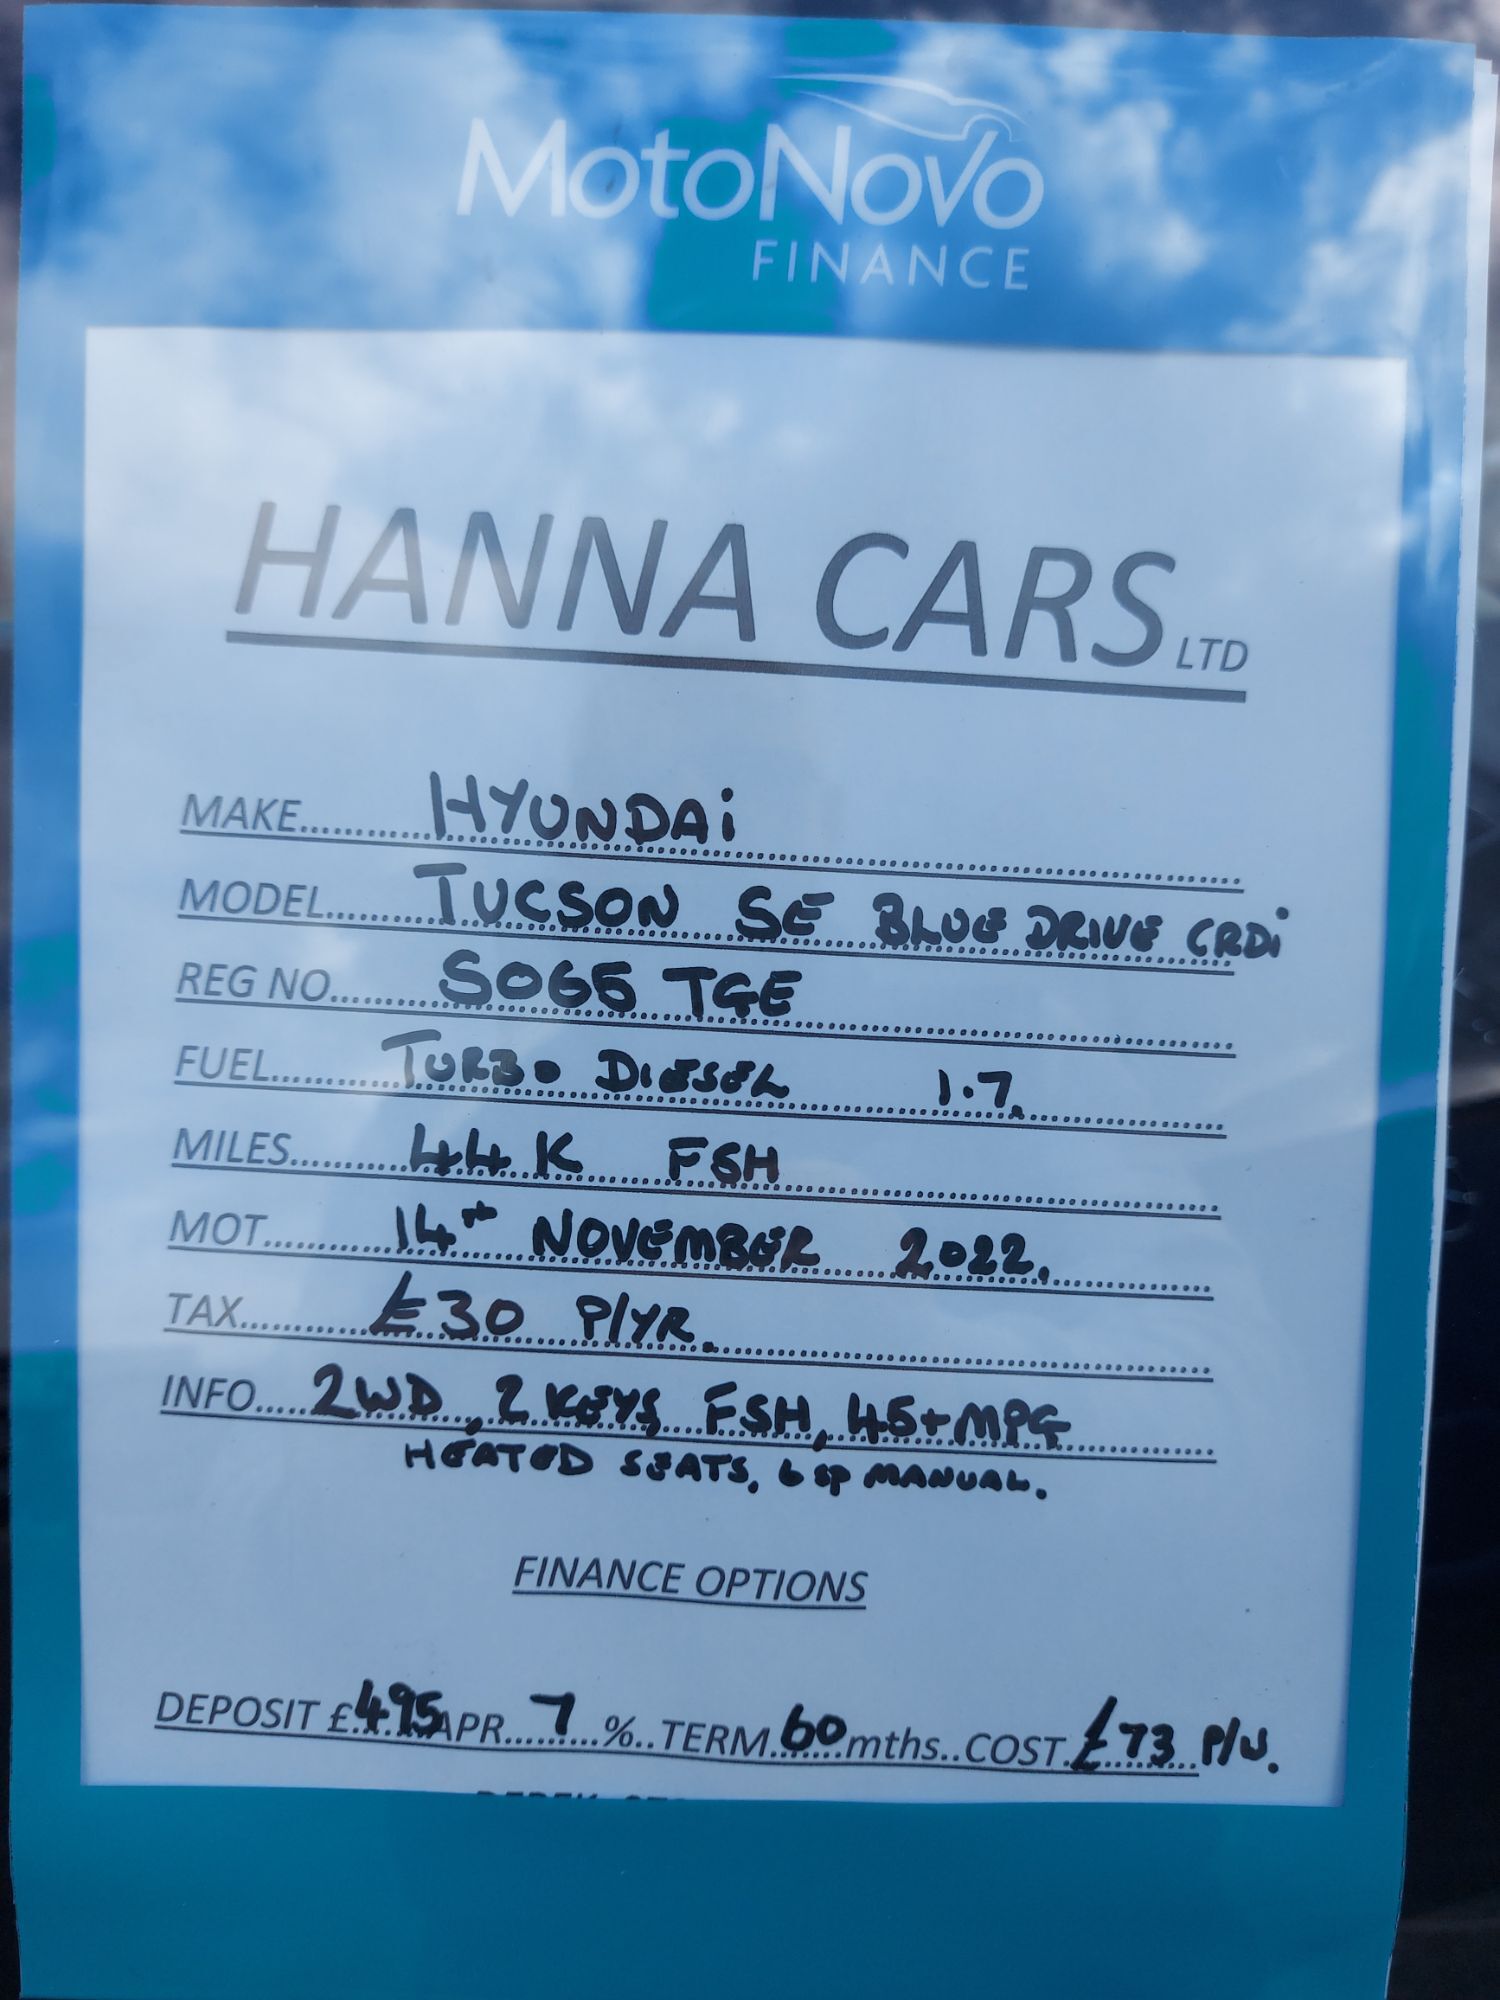 MotoNovo
FINANCE
HANNA CARS LTD
MAKE HYUNDAi
MODEL TUCSON SE BLUE DRIVE CRDi
REG NO SO65 TGE
FUEL TURBO DIESEL 1.7.
MILES 44K FSH
MOT 14th NOVEMBER 2022.
TAX £30 P/YR.
INFO 2WD, 2 KEYS, FSH, 45+MPG
HEATED SEATS, 6 sp MANUAL.
FINANCE OPTIONS
DEPOSIT £ 495 APR 7 % TERM 60 mths COST £73 P/W.